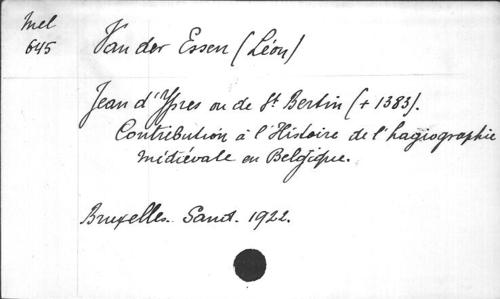 Mel
645
Van der Essen (Léon)
Jean d'Ypres ou de St Bertin (+ 1383).
Contribution à l'Histoire de l'hagiographie
médiévale en Belgique.
Bruxelles. Sand. 1922.